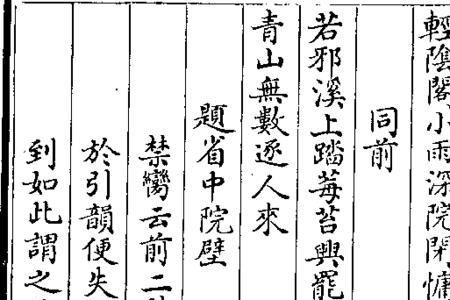 輕陰閣小雨深院閉慵
同前
若邪溪上踏莓苔興罷
青山無數逐人來
題省中院壁
禁臠云前二
於引韻便失
到如此謂之